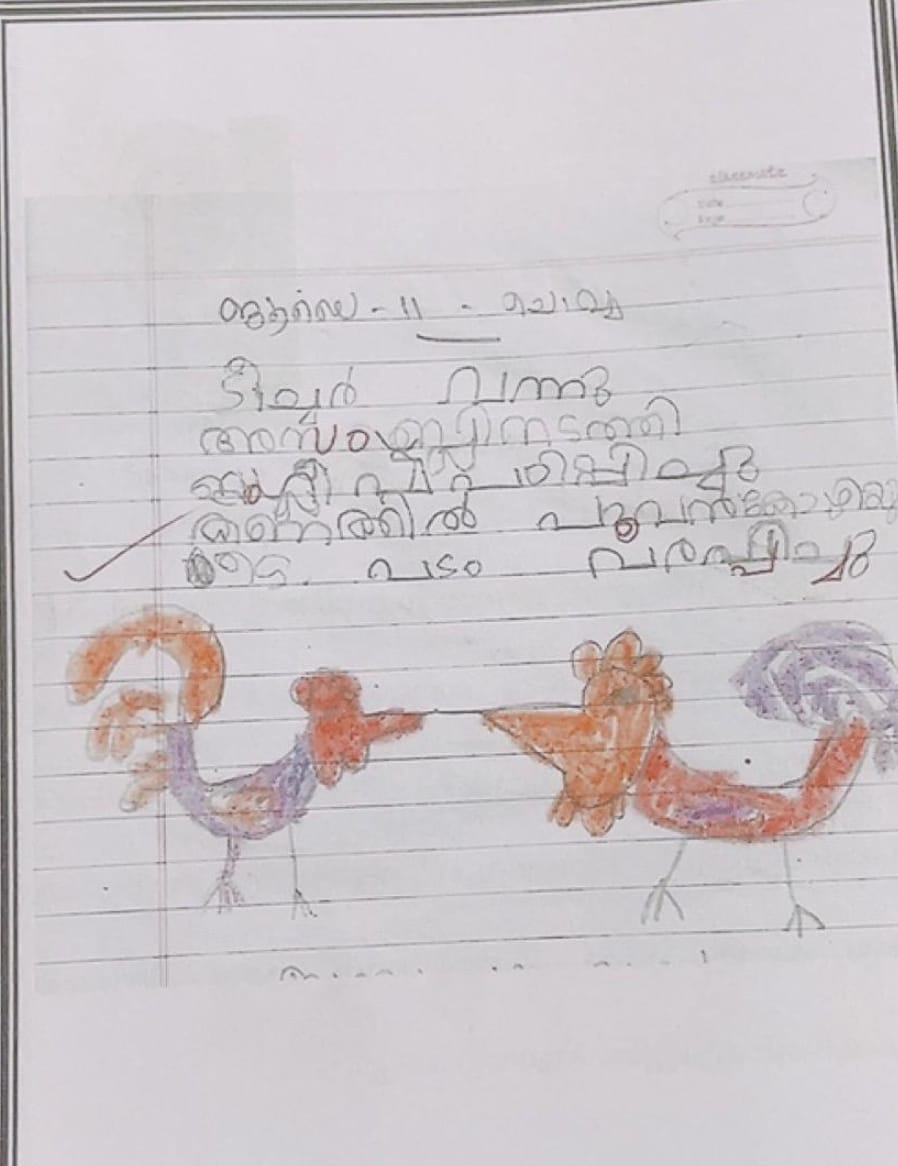 classmate
Date
Page
ജൂലൈ - 11 - ചൊവ്വ
ടീച്ചർ വന്നു
അസംബ്ലി നടത്തി
പഠിപ്പിച്ചു
പൂവൻകോഴിയു
ടെ പടം വരപ്പിച്ചു